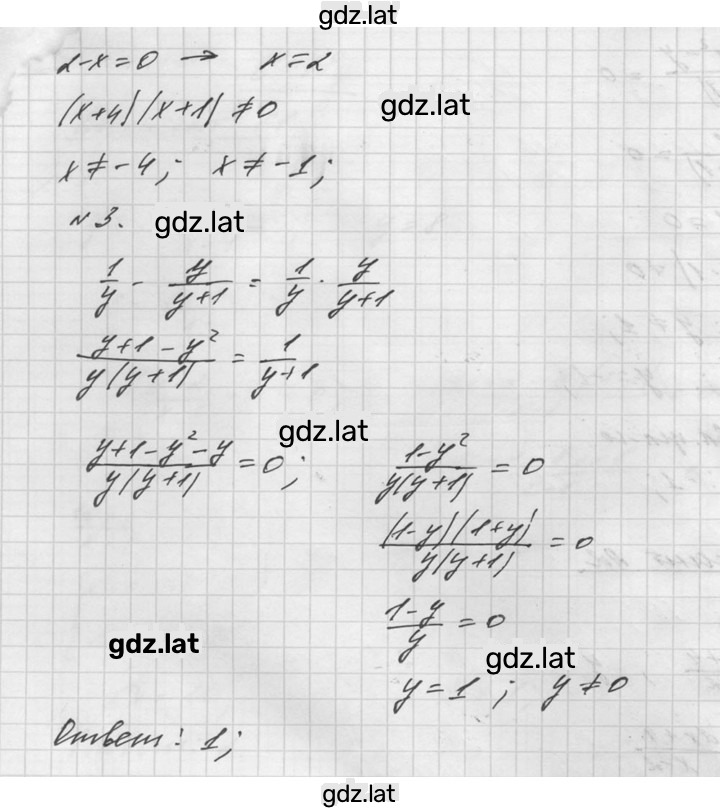 gdz.lat
2-x=0 → x=2
gdz.lat
(x+4)(x+1)≠0
x≠-4; x≠-1;
N3. gdz.lat
1/y - y/(y+1) = 1/y · y/(y+1)
(y+1-y²)/(y(y+1)) = 1/(y+1)
gdz.lat
(y+1-y²-y)/(y(y+1)) = 0; (1-y²)/(y(y+1)) = 0
((1-y)(1+y))/(y(y+1)) = 0
(1-y)/y = 0
gdz.lat
gdz.lat
y=1; y≠0
Ответ: 1;
gdz.lat